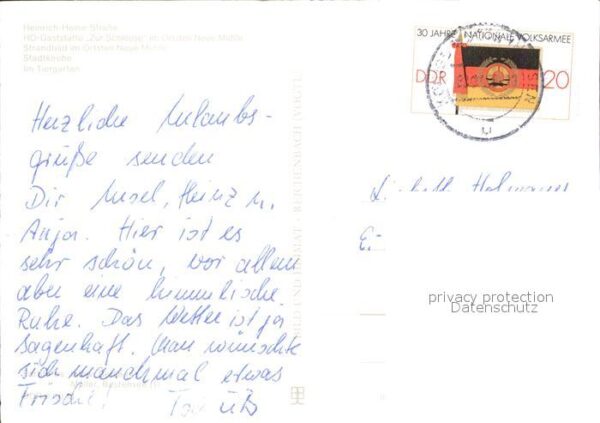 Heinrich-Heine-Straße
HO-Gaststätte „Zur Schleuse" im Ortsteil Neue Mühle
Strandbad im Ortsteil Neue Mühle
Stadtkirche
Im Tiergarten
30 JAHRE NATIONALE VOLKSARMEE
DDR 20
Herzliche Urlaubs-
grüße senden
Dir Ursel, Heinz u.
Anja. Hier ist es
sehr schön, vor allem
aber eine himmlische
Ruhe. Das Wetter ist ja
sagenhaft. Man wünschte
sich manchmal etwas
Frische!
BILD UND HEIMAT REICHENBACH (VOGTL)
privacy protection
Datenschutz